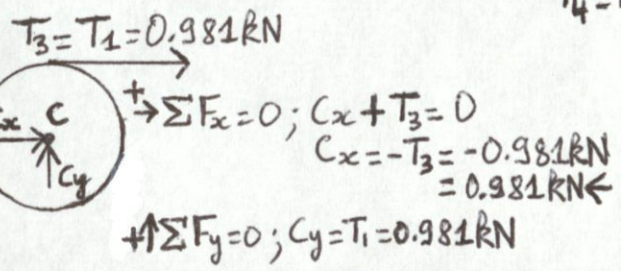 T₃ = T₁ = 0.981kN
C
Cy
+→ ΣFx = 0 ; Cx + T₃ = 0
Cx = -T₃ = -0.981kN
= 0.981kN←
+↑ΣFy = 0 ; Cy = T₁ = 0.981kN